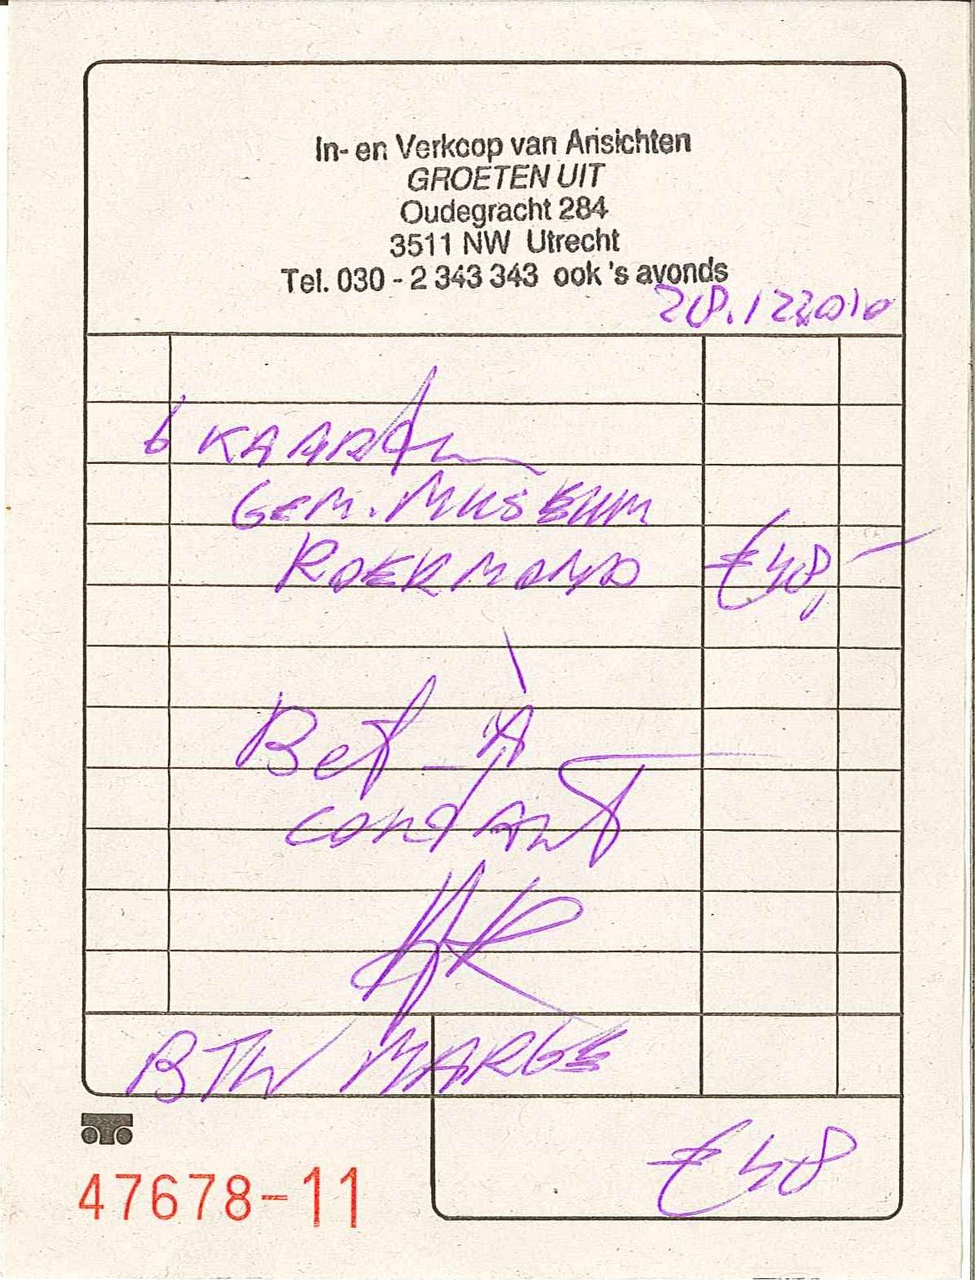 In- en Verkoop van Ansichten
GROETEN UIT
Oudegracht 284
3511 NW Utrecht
Tel. 030 - 2 343 343 ook 's avonds
28.12.2010
6 KAARTEN
GEM. MUSEUM
ROERMOND €48,-
Bet. À
contant
BTW MARGE
€48
47678-11